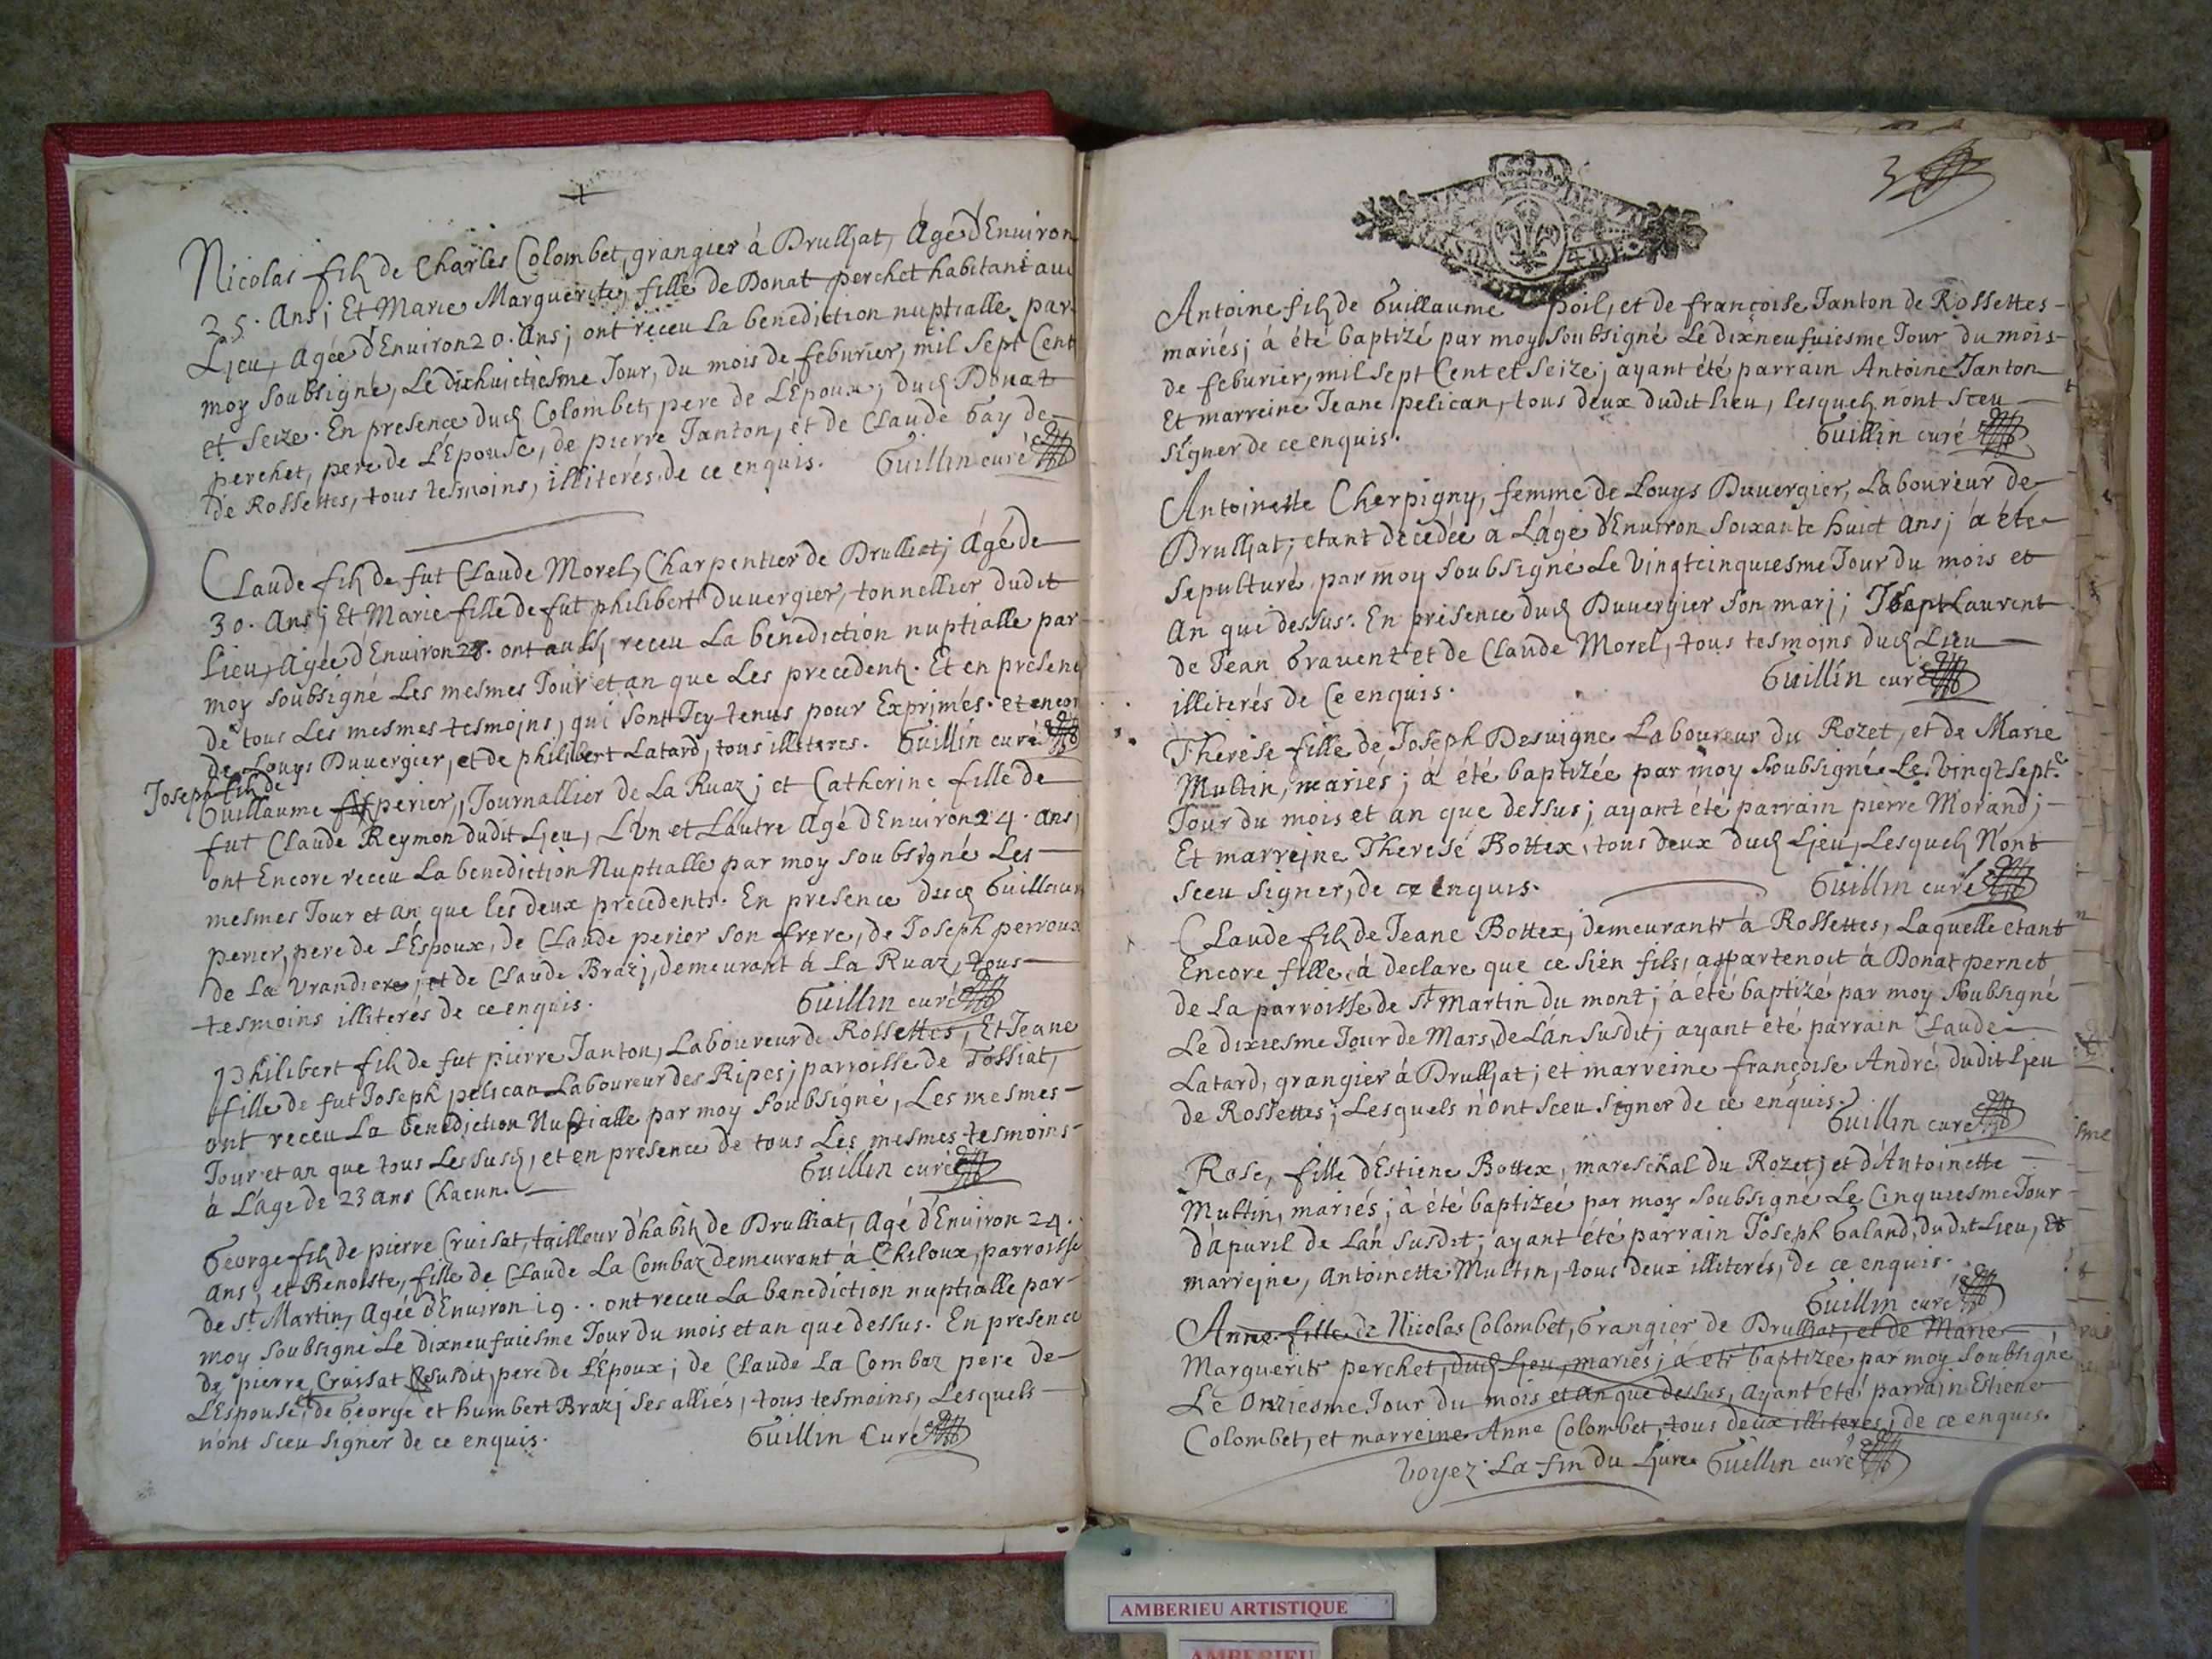 Nicolas fils de Charles Colombet, grangier à Drulliat, Agé d'Environ
25. Ans; Et Marie Marguerite, fille de Donat perchet habitant aud
Lieu, Agée d'Environ 20. Ans; ont receu La benediction nuptialle, par
moy soubsigné, Le dixhuictiesme Jour, du mois de feburier, mil sept Cent
et seize. En presence dud Colombet, pere de L'Epoux; dud Donat
perchet, pere de L'Epouse, de pierre Janton, et de Claude Gay de
de Rossettes, tous tesmoins, illiterés de ce enquis. Guillin curé
Claude fils de fut Claude Morel, Charpentier de Drulliat; Agé de
30. Ans; Et Marie fille de fut philibert Duuergier, tonnellier dudit
Lieu, Agée d'Environ 28. ont aussy receu La benediction nuptialle par
moy soubsigné Les mesmes Jour et an que Les precedents. Et en presence
de tous Les mesmes tesmoins, qui sont Icy tenus pour Exprimés. et encor
de Louys Duuergier, et de philibert Latard, tous illiteres. Guillin curé
Joseph fils de
Guillaume perier, Journallier de La Ruaz; et Catherine fille de
fut Claude Reymon dudit Lieu, L'Un et L'autre Agé d'Environ 24. ans;
ont Encore receu La benediction Nuptialle par moy soubsigné Les
mesmes Jour et an que les deux precedents. En presence dud Guillaum
perier, pere de L'Espoux, de Claude perier son frere, de Joseph perroux
de La Vrandiere, et de Claude Brazj, demeurant à La Ruaz, tous
tesmoins illiterés de ce enquis. Guillin curé
Philibert fils de fut pierre Janton, Laboureur de Rossettes, Et Jeane
fille de fut Joseph pelican Laboureur des Ripes; parroisse de Tossiat,
ont receu La benediction Nuptialle par moy soubsigné, Les mesmes
Jour et an que tous Les susd, et en presence de tous Les mesmes tesmoins
à L'age de 23 ans Chacun. Guillin curé
George fils de pierre Cruisat, tailleur d'habits de Drulliat, Agé d'Environ 24.
ans; et Benoiste, fille de Claude La Combaz demeurant à Chiloux, parroisse
de St Martin, Agée d'Environ 19.. ont receu La benediction nuptialle par
moy soubsigné Le dixneufuiesme Jour du mois et an que dessus. En presence
de pierre Cruisat susdit, pere de L'Epoux; de Claude La Combaz pere de
L'Espouse, et de George et humbert Brazj ses alliés, tous tesmoins, Lesquels
n'ont sceu signer de ce enquis. Guillin Curé
3
Antoine fils de Guillaume poilj et de françoise Janton de Rossettes
mariés; à été baptizé par moy soubsigné Le dixneufuiesme Jour du mois
de feburier, mil sept Cent et seize; ayant été parrain Antoine Janton
Et marreine Jeane pelican, tous deux dudit lieu, lesquels n'ont sceu
signer de ce enquis. Guillin curé
Antoinette Cherpigny, femme de Louys Duuergier, Laboureur de
Drulljat; etant decedée a L'agé d'Environ soixante huict ans; a été
sepulturé par moy soubsigné Le Vingtcinquiesme Jour du mois et
An que dessus. En presence dud Duuergier son marj; Laurent
de Jean Grauent et de Claude Morel, tous tesmoins dud Lieu
illiterés de Ce enquis. Guillin curé
Therese fille de Joseph Desuigne Laboureur du Rozet, et de Marie
Multin, mariés; à été baptizée par moy soubsigné Le Vingtsept.e
Jour du mois et an que dessus; ayant été parrain pierre Morand;
Et marrejne Therese Bottex, tous deux dud Ljeu, Lesquels N'ont
sceu signer, de ce enquis. Guillin curé
Claude fils de Jeane Bottex, demeurante à Rossettes, Laquelle etant
Encore fille, à declare que ce sien fils, appartenoit à Donat pernet
de La parroisse de St Martin du mont; a été baptizé par moy soubsigné
Le dixiesme Jour de Mars, de L'an susdit; ayant été parrain Claude
Latard, grangier à Drulljat; et marreine françoise André dudit Ljeu
de Rossettes; Lesquels n'ont sceu signer de ce enquis. Guillin curé
Rose, fille d'Estiene Bottex, mareschal du Rozet; et d'Antoinette
Multin, mariés; à été baptizée par moy soubsigné Le Cinquiesme Jour
d'apuril de L'an susdit; ayant été parrain Joseph Galand, dudit Lieu, et
marrejne, Antoinette Multin, tous deux illiterés, de ce enquis.
Guillin curé
Anne fille de Nicolas Colombet, Grangier de Drulljat, et de Marie
Marguerite perchet, dud Ljeu, mariés; à été baptizée par moy soubsigné
Le Onziesme Jour du mois et an que dessus, Ayant été parrain Estiene
Colombet, et marreine Anne Colombet, tous deux illiteres; de ce enquis.
Voyez La fin du Ljure Guillin curé
AMBERIEU ARTISTIQUE
AMBERIEU